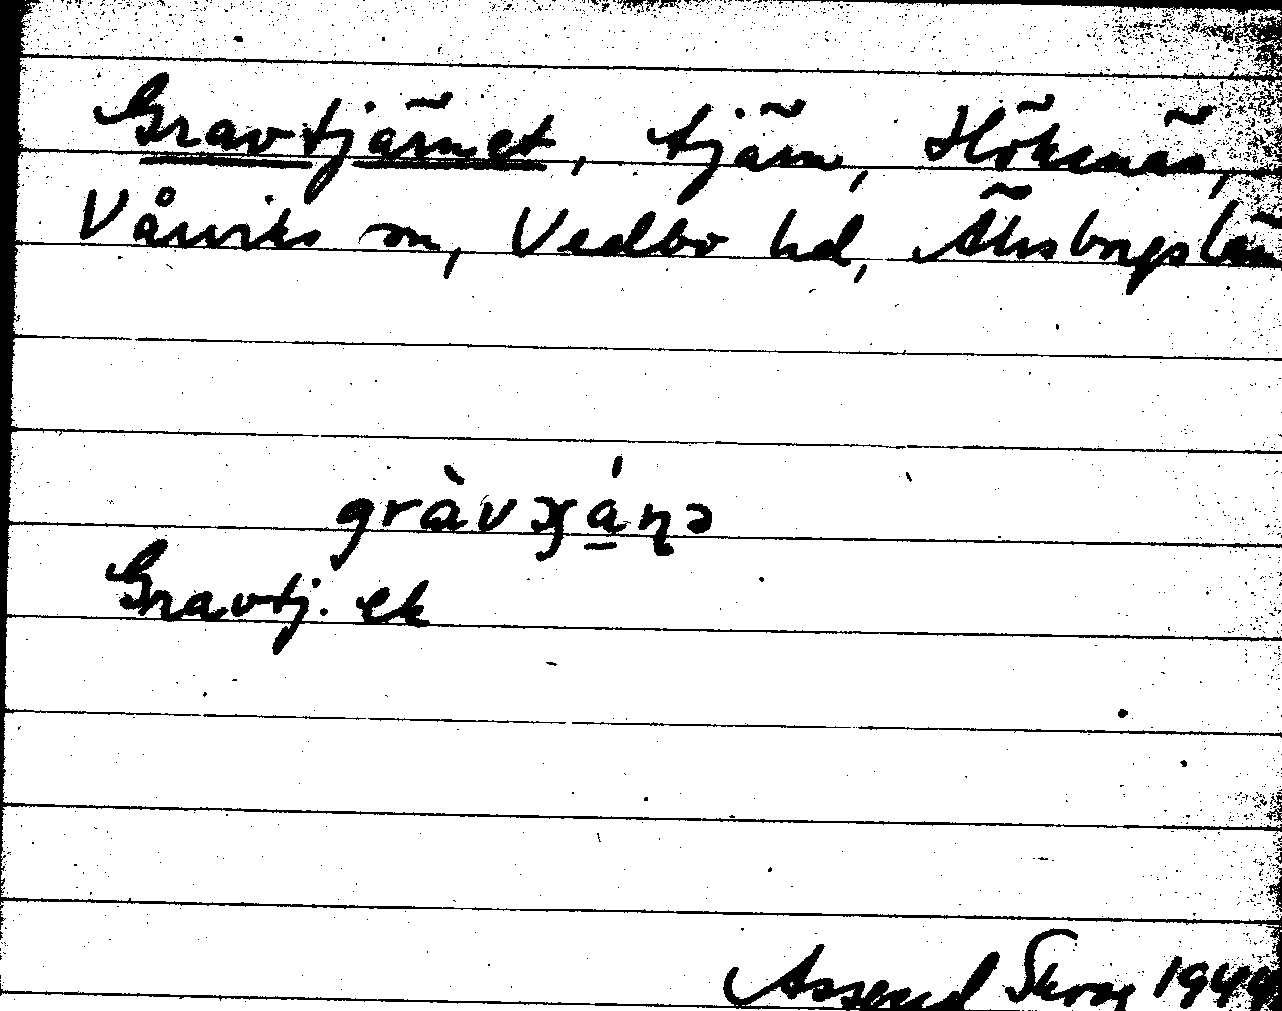 Gravtjärnet, tjärn, Höksnäs,
Vårviks sn, Vedbo hd, Älvsborgs län
gràvɟá̱ɳə
Gravtj. ek
Assar Skog 1944